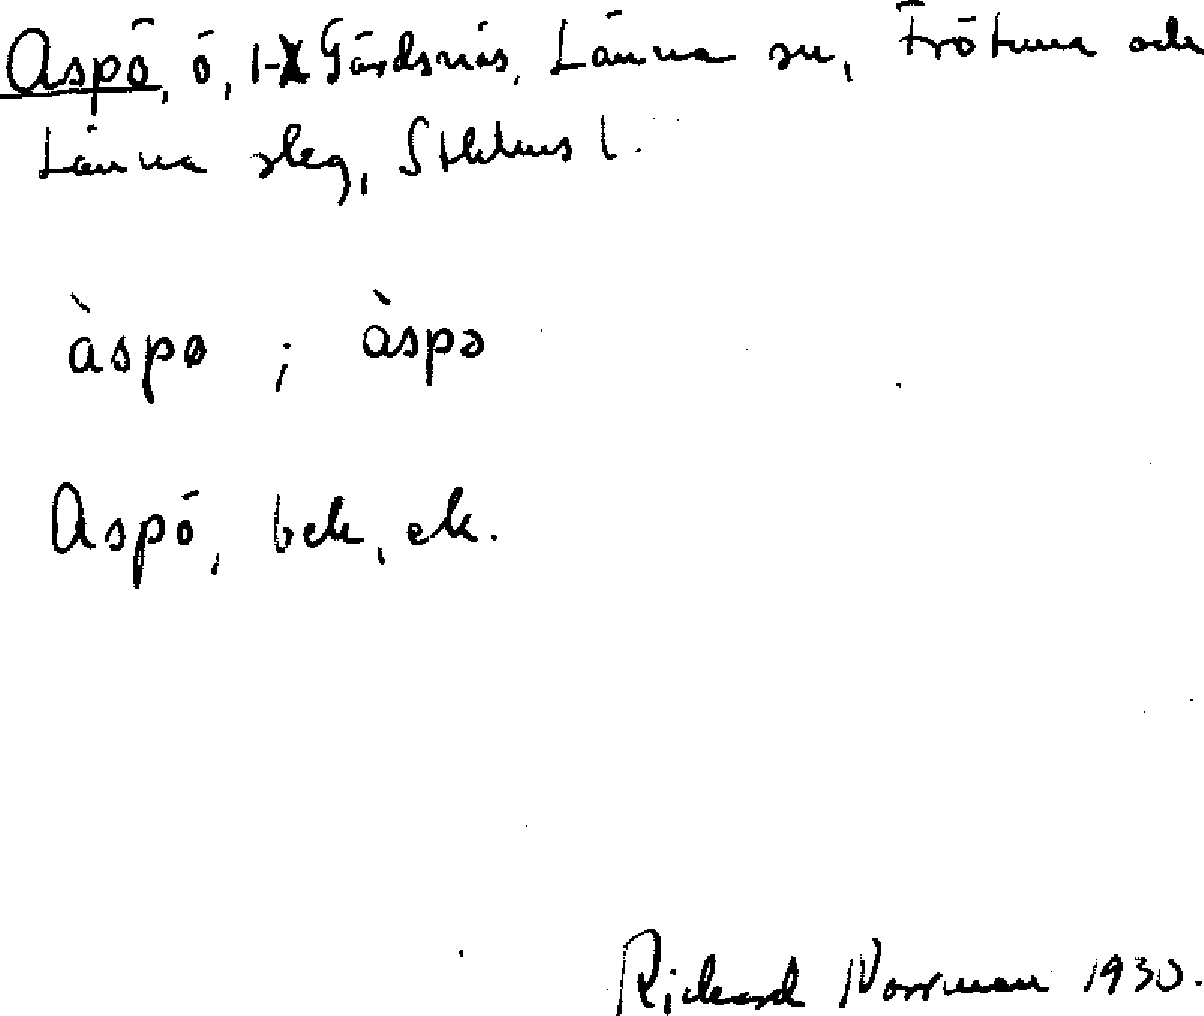 Aspö, ö, Gärdsnäs, Länna sn, Frötuna och
Länna slag, Sthlms l.
àspø ; àspə
Aspö, bek, ek.
Rickard Norrman 1930.